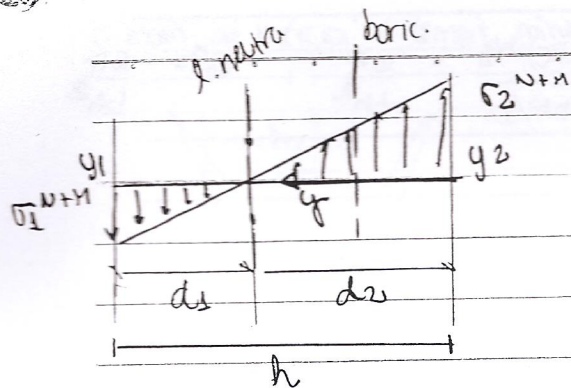 l. neutra
baric.
σ2 N+M
y1
y2
σ1 N+M
y
d1
d2
h